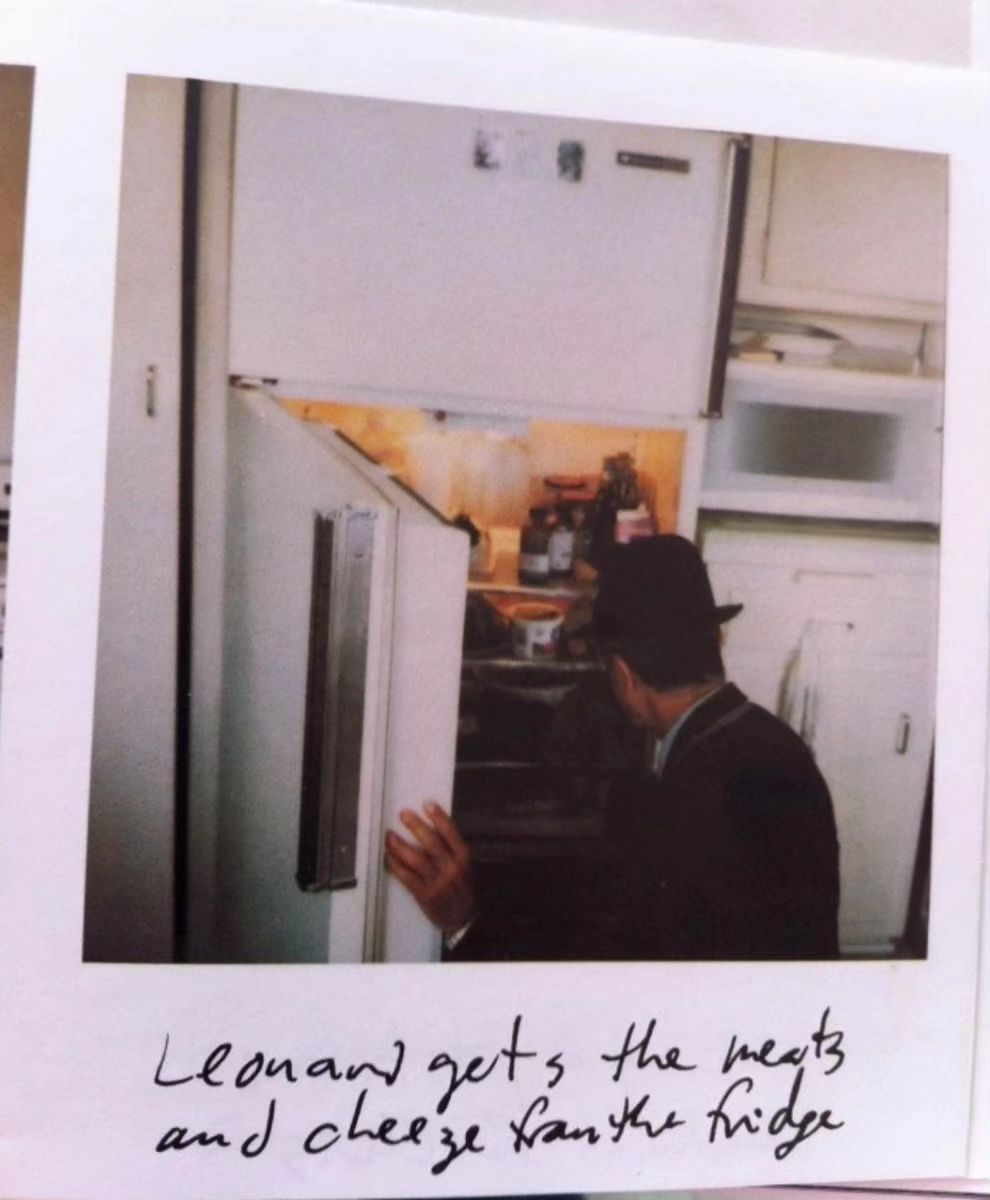 Leonard gets the meats
and cheeze from the fridge